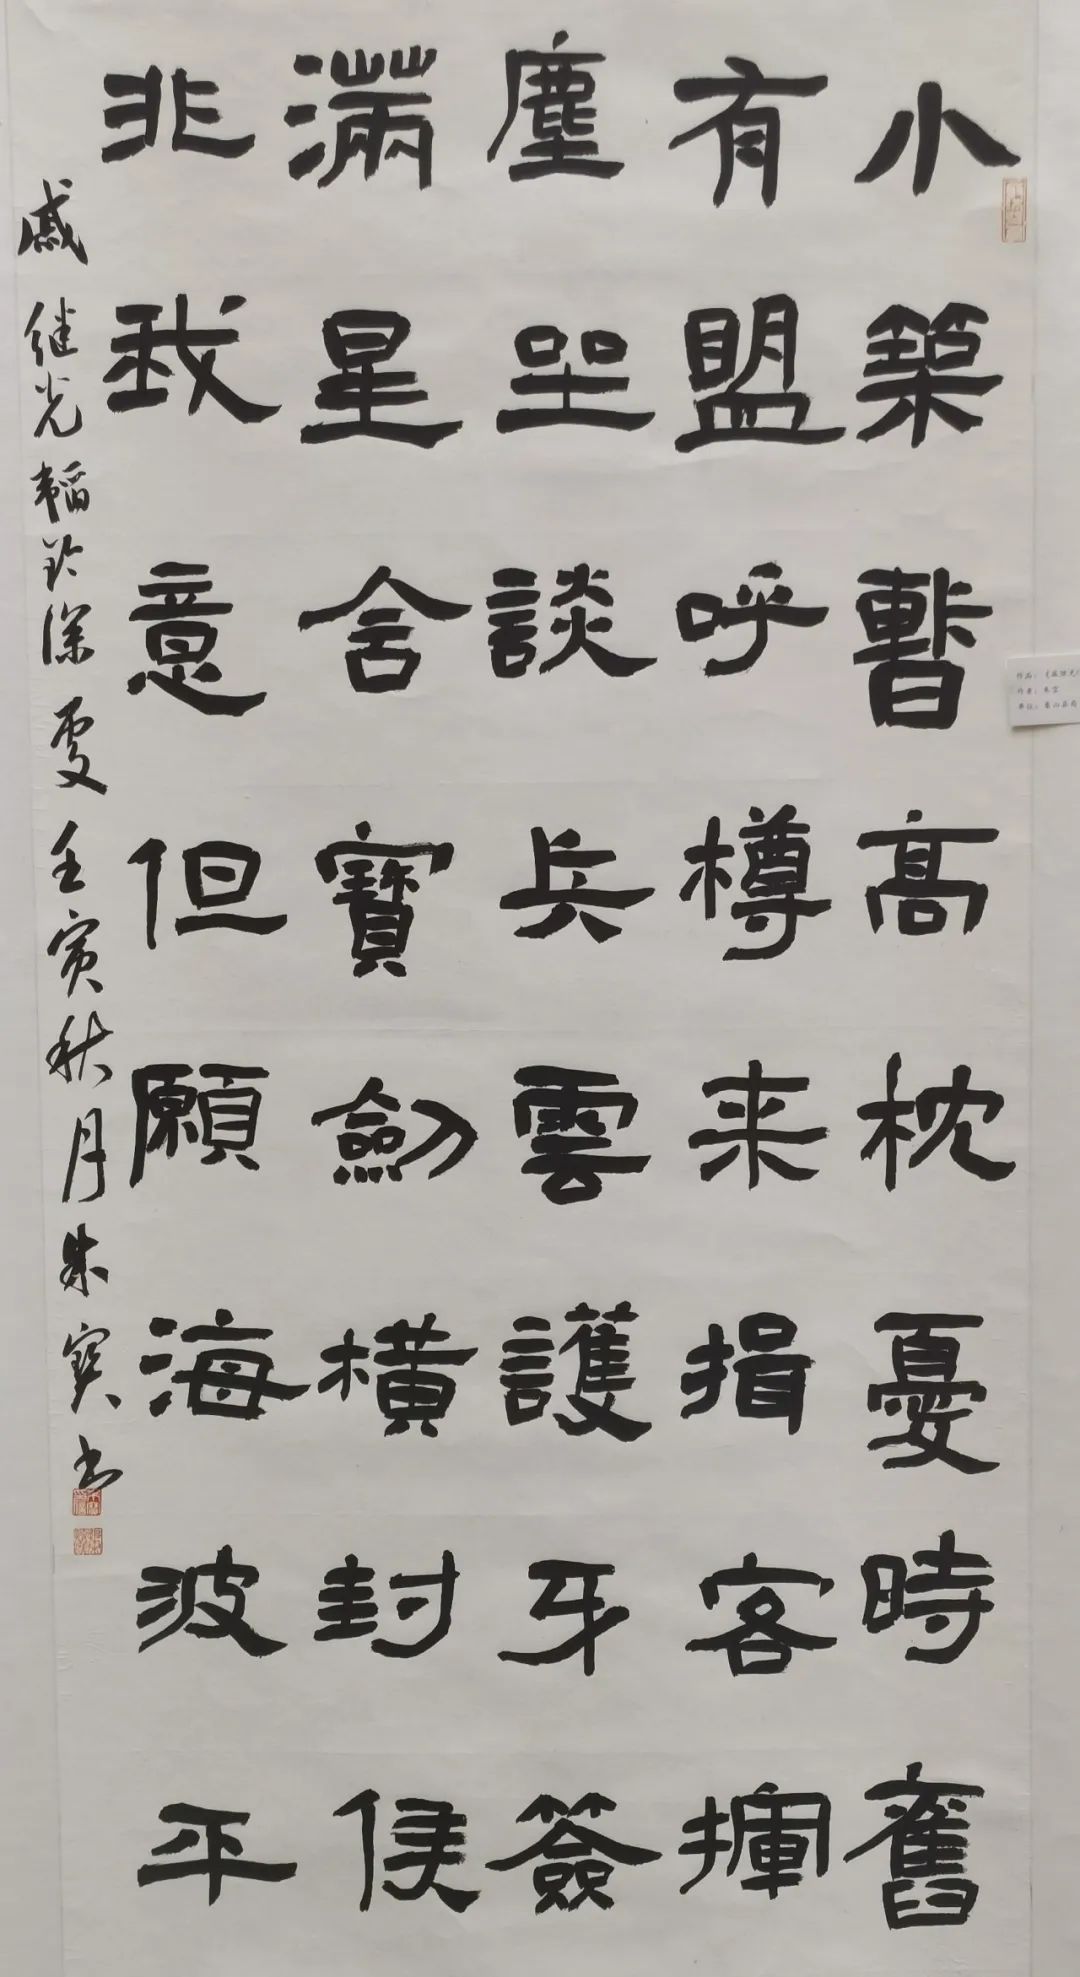 小築暫高枕憂時舊
有盟呼樽来揖客揮
塵坐談兵雲護牙簽
滿星含寶劍橫封侯
非我意但願海波平
戚继光韬钤深处壬寅秋月朱寳书
作者：朱宝